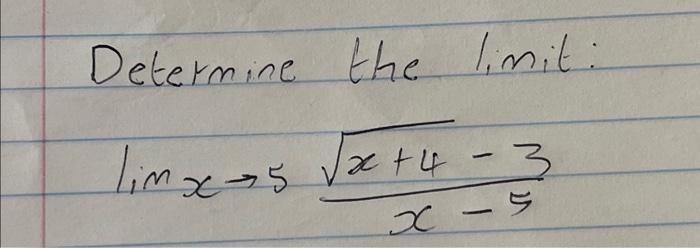 Determine the limit:
lim x→5 √(x+4) - 3 / x - 5